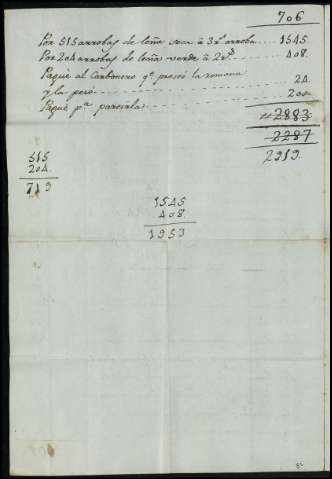 706
Por 515 arrobas de leña seca à 3 rs arroba 1545.
Por 204 arrobas de leña verde à 2 rs 408.
Pagué al Carbonero q.e prestó la romana
y la pesó 24.
Pagué pª 200
2883
2287
2919.
515
204.
719
1545
408
1953